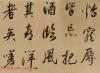 怡寵辱
皆忘把
酒臨風
其喜洋
者矣